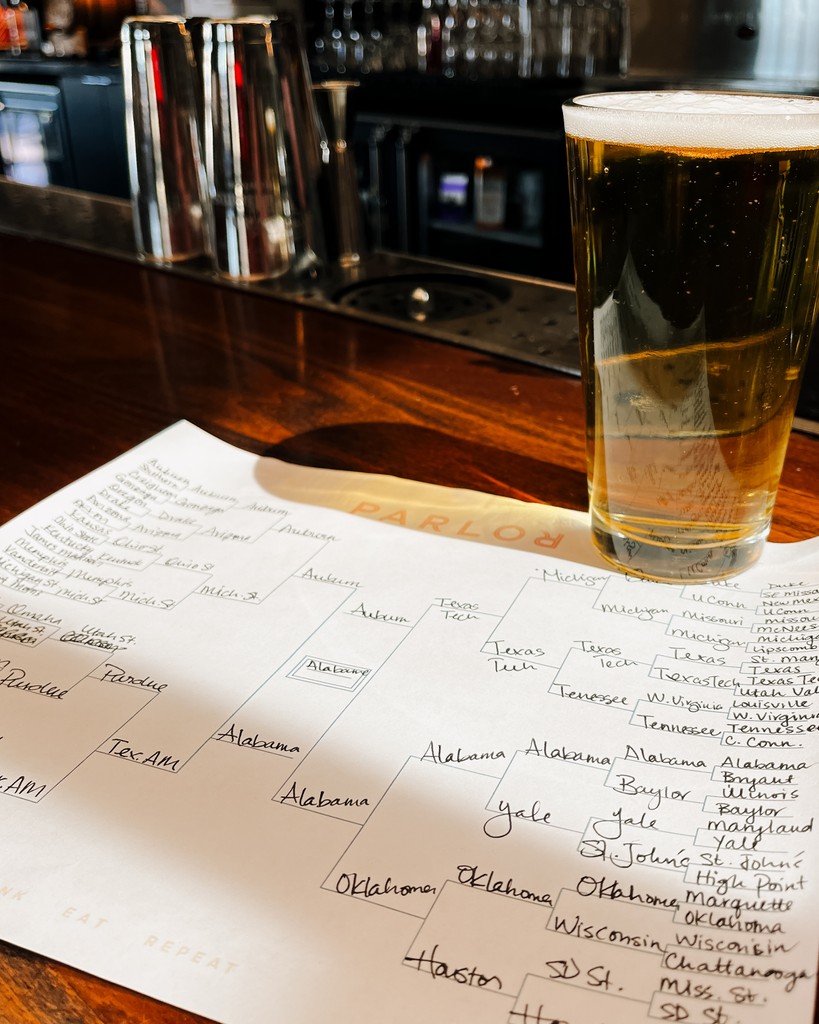 PARLOR
Auburn
Southern
Creighton
Gonzaga
Oregon
Drake
Arizona
Kansas
Kentucky
Memphis
Vanderbilt
Michigan St
Auburn
Gonzaga
Drake
Arizona
Ohio St
Memphis
Mich St
Auburn
Arizona
Ohio St
Mich St
Auburn
Mich. St
Auburn
Auburn
Omaha
Utah St.
Purdue
Purdue
Tex. AM
Alabama
Alabama
Texas Tech
Alabama
Michigan
Texas Tech
Michigan
Texas Tech
Tennessee
UConn
Missouri
Michigan
Texas
Texas Tech
W. Virginia
Tennessee
Duke
SE Misso
New Mex
UConn
Missou
McNees
Michiga
Lipscomb
St. Mary
Texas
Texas Te
Utah Val
Louisville
W. Virginia
Tennessee
C. Conn.
Alabama
Oklahoma
Alabama
Yale
Oklahoma
Houston
Alabama
Baylor
Yale
St. John's
Oklahoma
Wisconsin
SD St.
Alabama
Bryant
Illinois
Baylor
Maryland
Yale
St. John's
High Point
Marquette
Oklahoma
Wisconsin
Chattanooga
Miss. St.
SD St.
NK EAT REPEAT